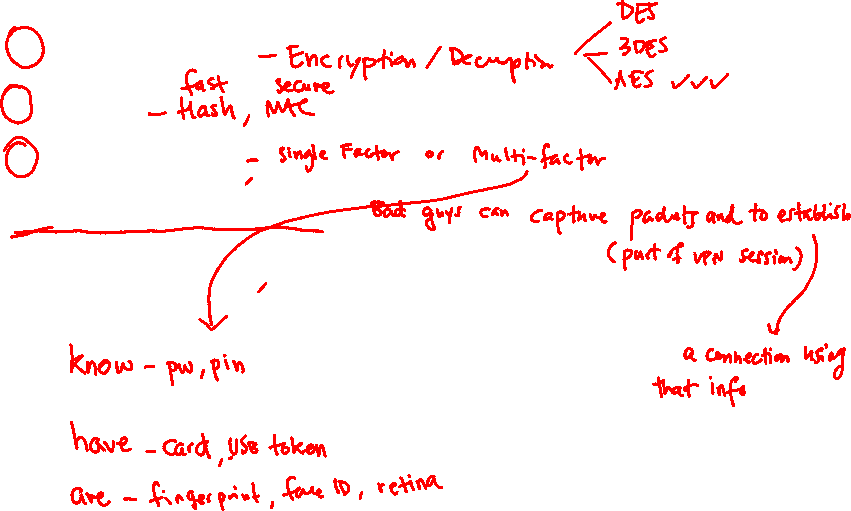 DES
- Encryption / Decryption
3DES
AES ✓✓✓
fast secure
- Hash, MAC
- Single Factor or Multi-factor
Bad guys can capture packets and to establish
(part of VPN session)
a connection using
that info
know - pw, pin
have - card, USB token
are - fingerprint, face ID, retina